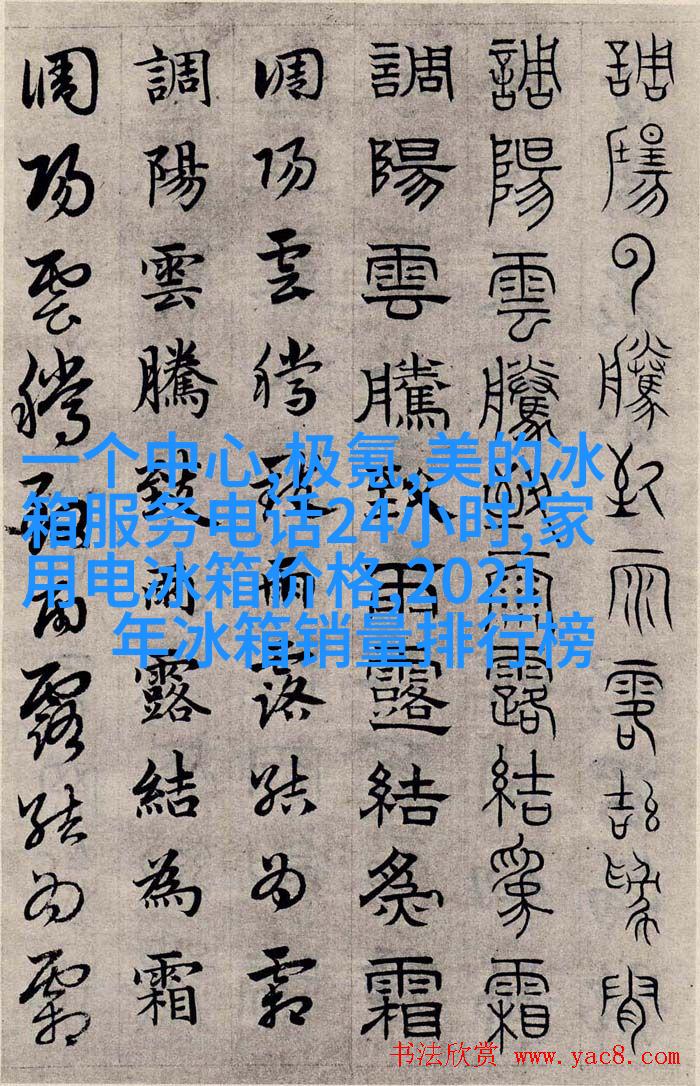 調陽雲騰致雨露結為霜
調陽雲騰致雨露結為霜
調陽雲騰致雨露結為霜
調陽雲騰致雨露結為霜
調陽雲騰致雨露結為霜
調陽雲騰致雨露結為霜
一个中心,极氪,美的冰
箱服务电话24小时,家
用电冰箱价格,2021
年冰箱销量排行榜
书法欣赏 www.yac8.com